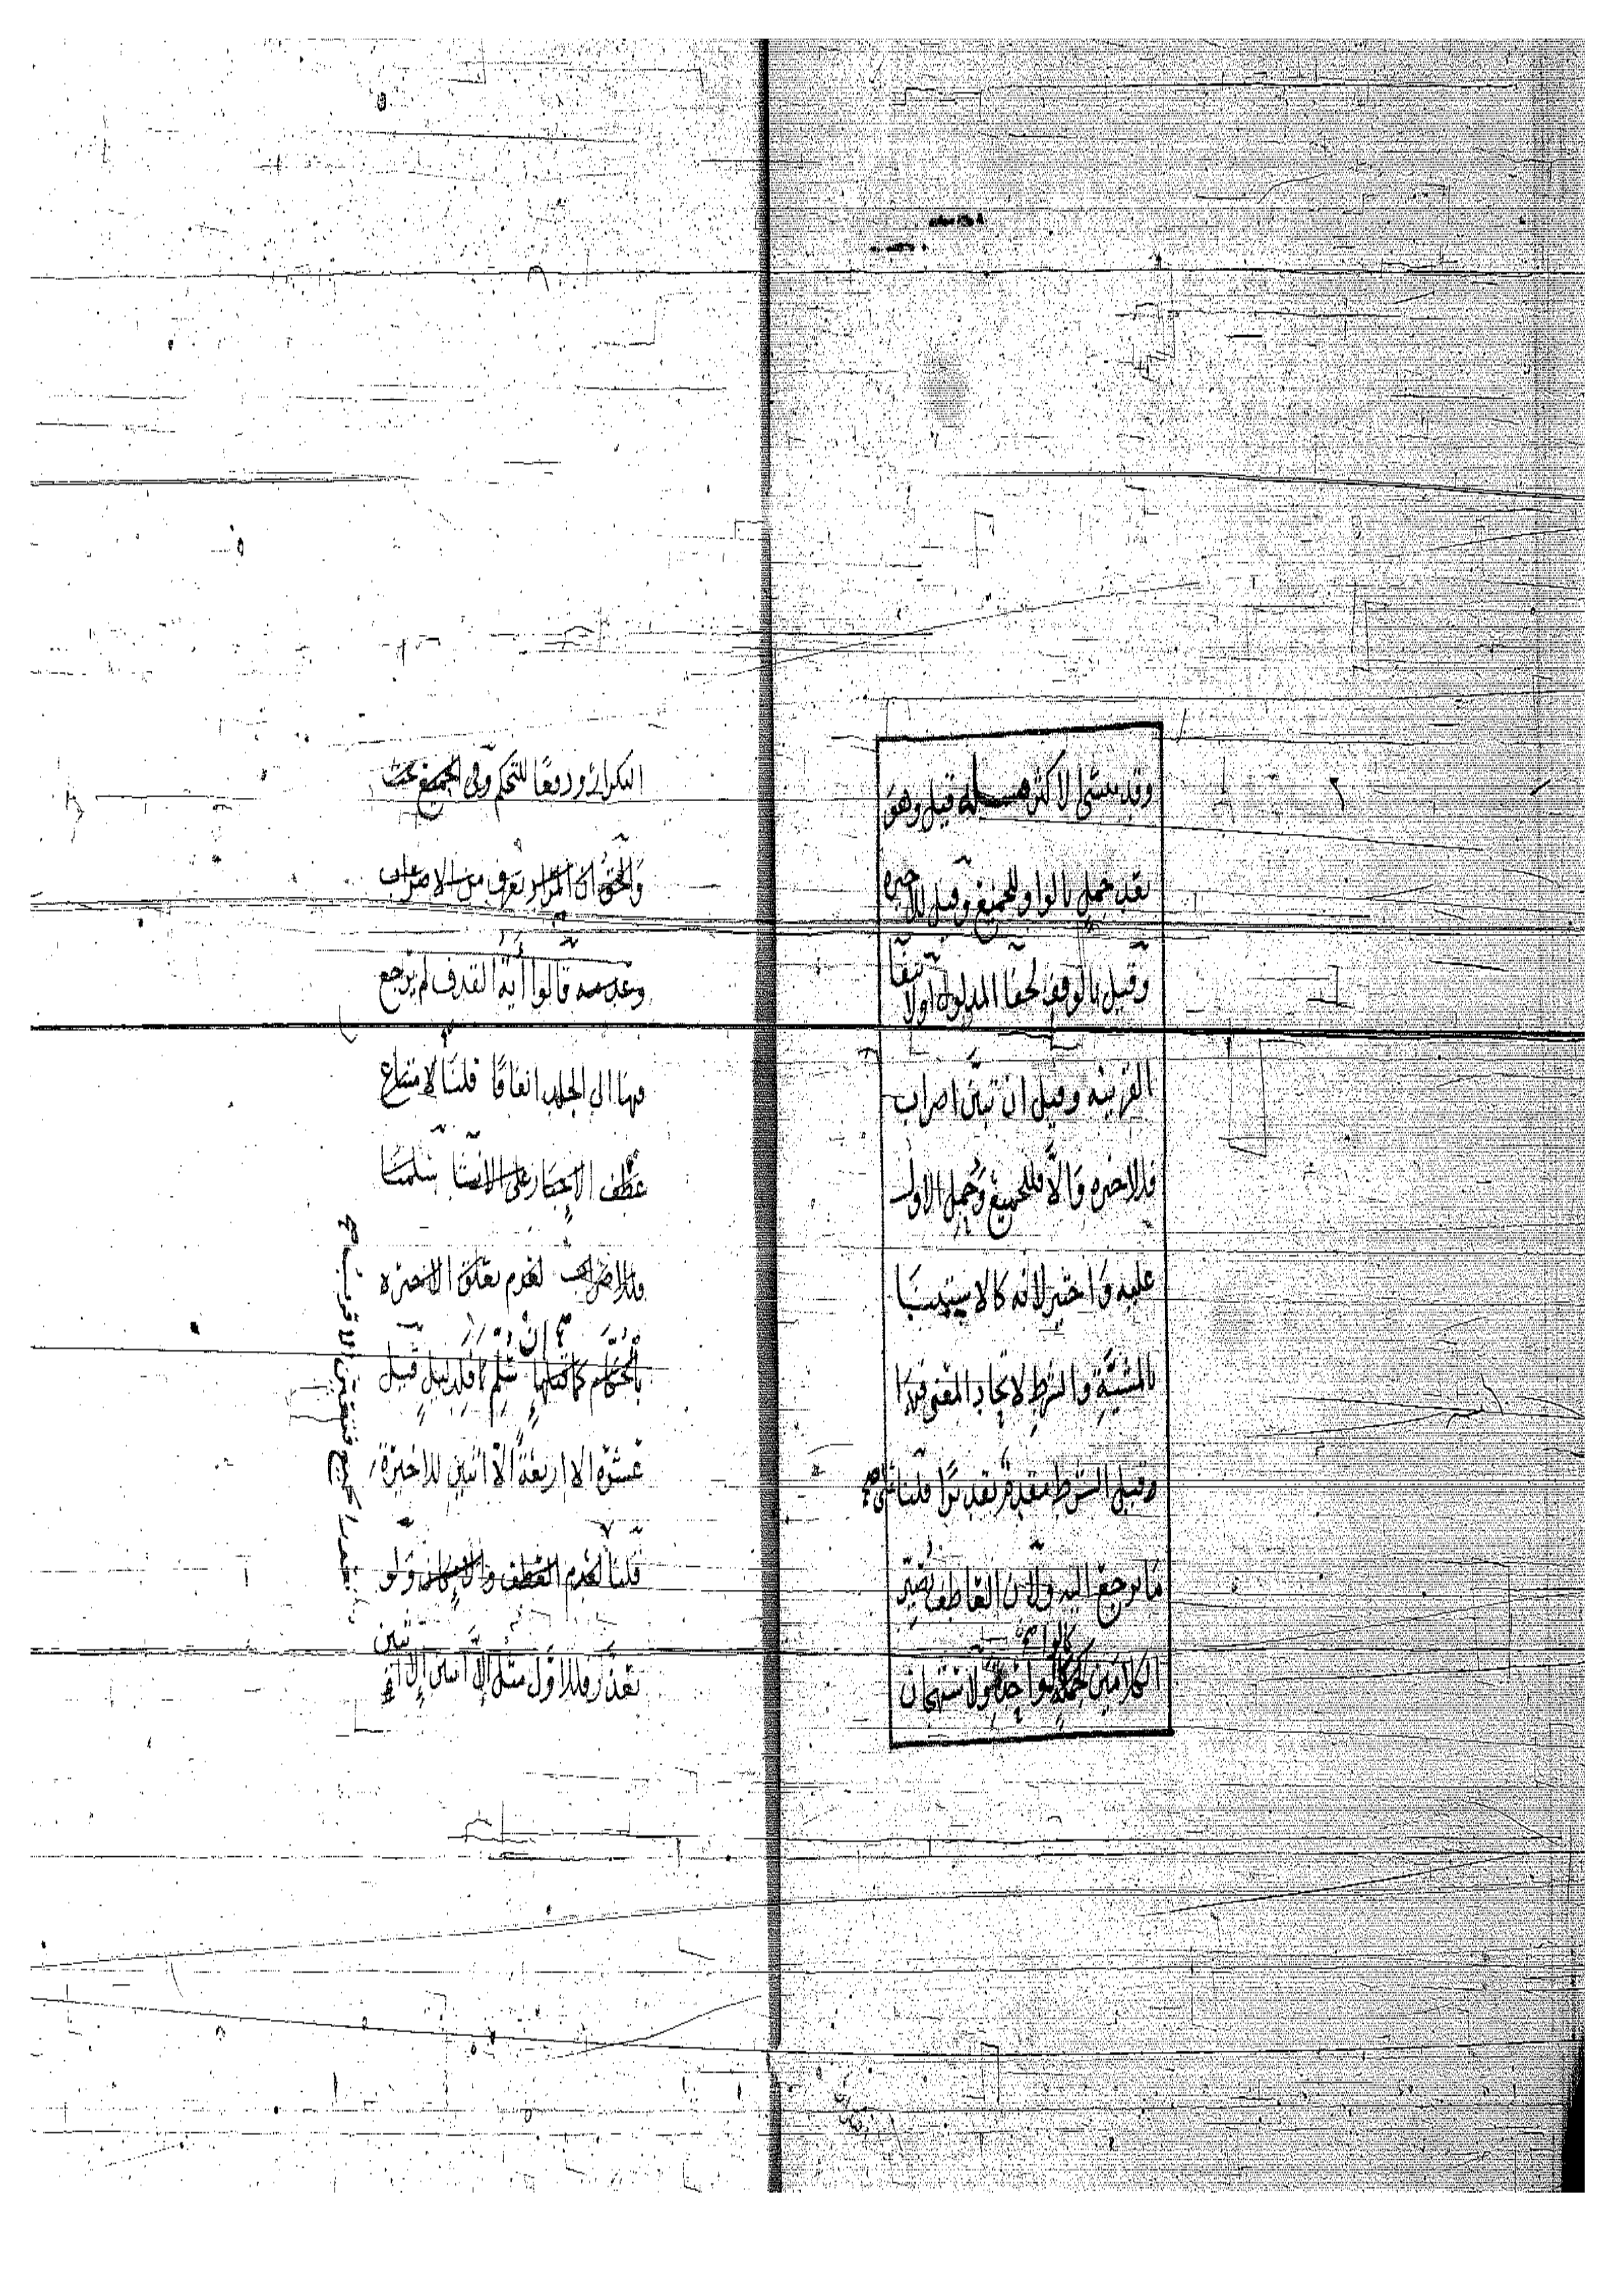 وقد يستثنى الاكثر مسئلة قيل وهو
بعد جمل بالواو للجميع وقيل للاخيره
وقيل بالوقف لخفا المدلول اولا
القرينه وقيل ان تبين اضراب
فللاخيره والا فللجميع وحمل الاول
عليه واختير لانه كالاستثنا
بالمشية والشرط لاتحاد المعنى قيدا
وقيل الشرط مقدم تقديرا قلنا على
ما يرجع اليه ولان العاطف يصير
الكلامين كالواحد ولاستهجان
التكرار ودفعا للتحكم وفى الجميع بحث
والحق ان المراد يعرف من الاضراب
وعدمه قالوا أية القذف لم يرجع
فيها الى الجلد اتفاقا قلنا لامتناع
عطف الاخبار على الانشا سلمنا
فللاضراب لعدم تعلق الاخيره
بالحكام ان سلم فلدليل قيل
عشرة الا اربعة الا اثنين للاخيرة
قلنا لعدم العطف ولو
تعذر فللاول مثل الا اثنين الا اثنين